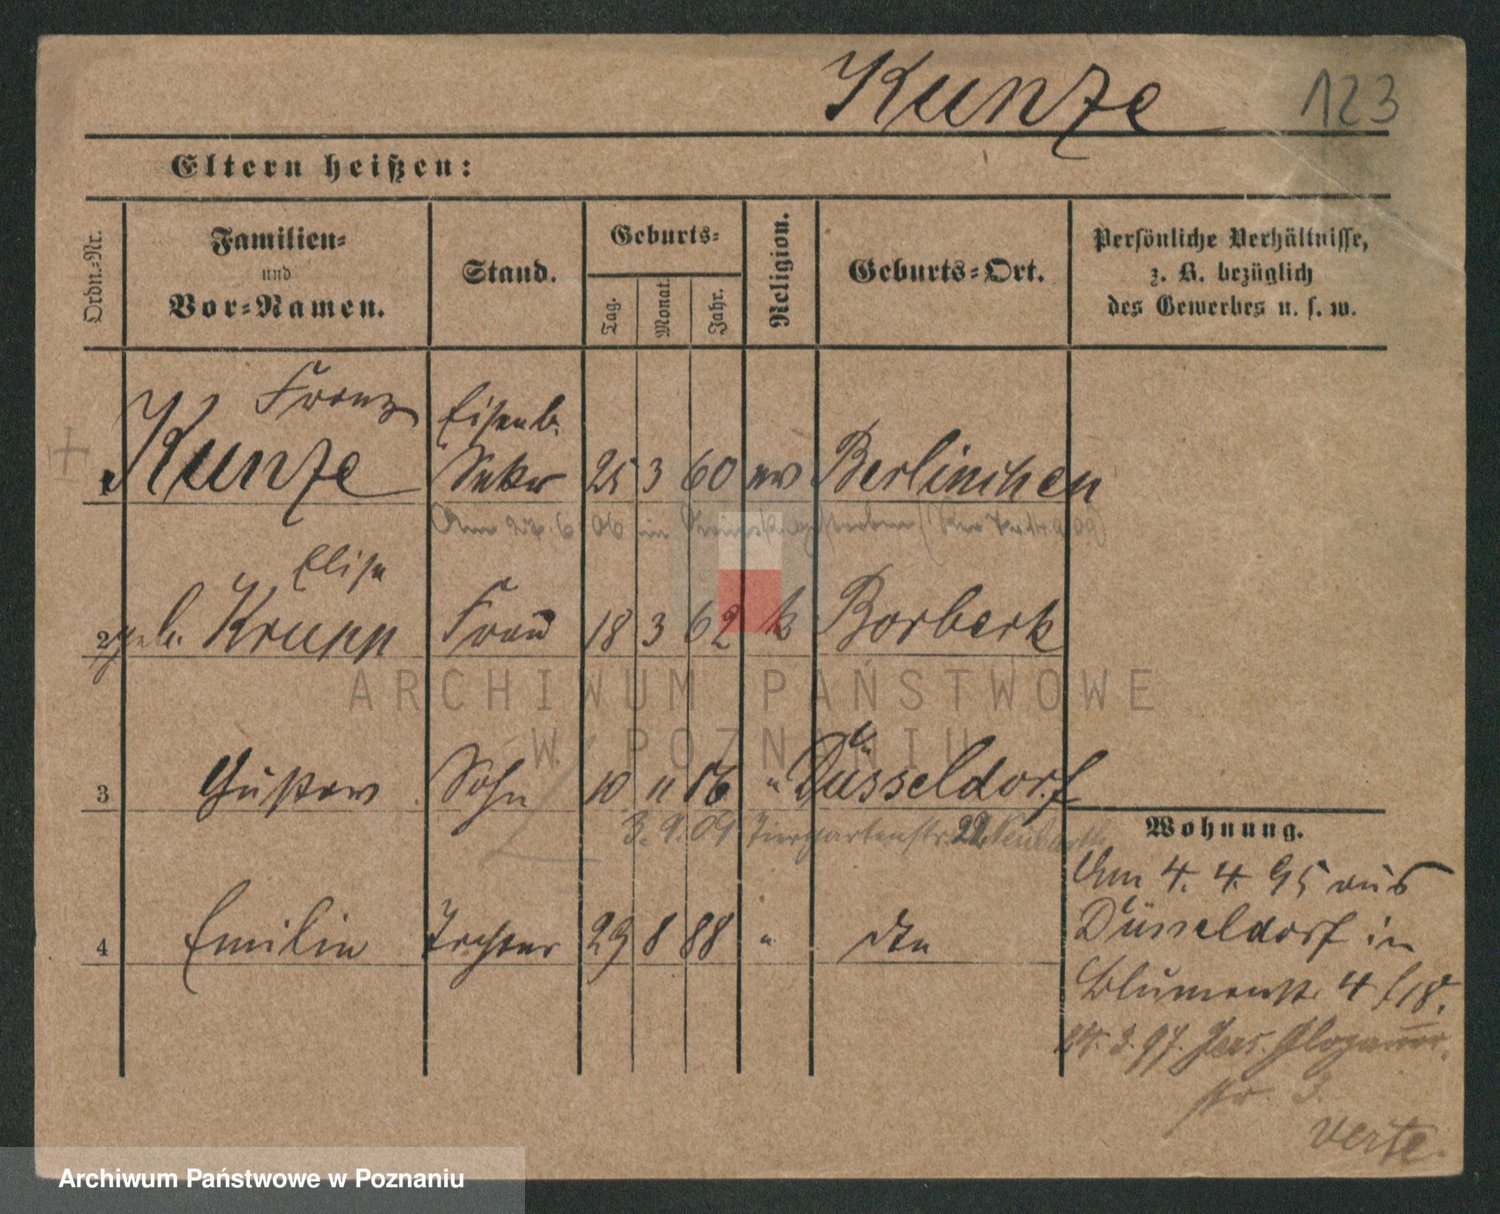 Kunze 123
Eltern heißen:
Ordn.-Nr.
Familien-
und
Vor-Namen.
Stand.
Geburts-
Tag.
Monat.
Jahr.
Religion.
Geburts-Ort.
Persönliche Verhältnisse,
z. B. bezüglich
des Gewerbes u. s. w.
Franz Eisenb.
1 Kunze Sekr 25 3 60 ev Berlinchen
Am 27. 6. 06 in gestorben
Elise
2 geb. Krupp Frau 18 3 62 k Borbeck
ARCHIWUM PAŃSTWOWE
W POZNANIU
3 Gustav Sohn 10 11 86 " Düsseldorf
3. 9. 09 Tiergartenstr.
Wohnung.
4 Emilie Tochter 29 8 88 " dto
Am 4. 4. 95 aus
Düsseldorf in
Blumenstr. 4
3. 97. Glogauer
str. 3.
verte.
Archiwum Państwowe w Poznaniu